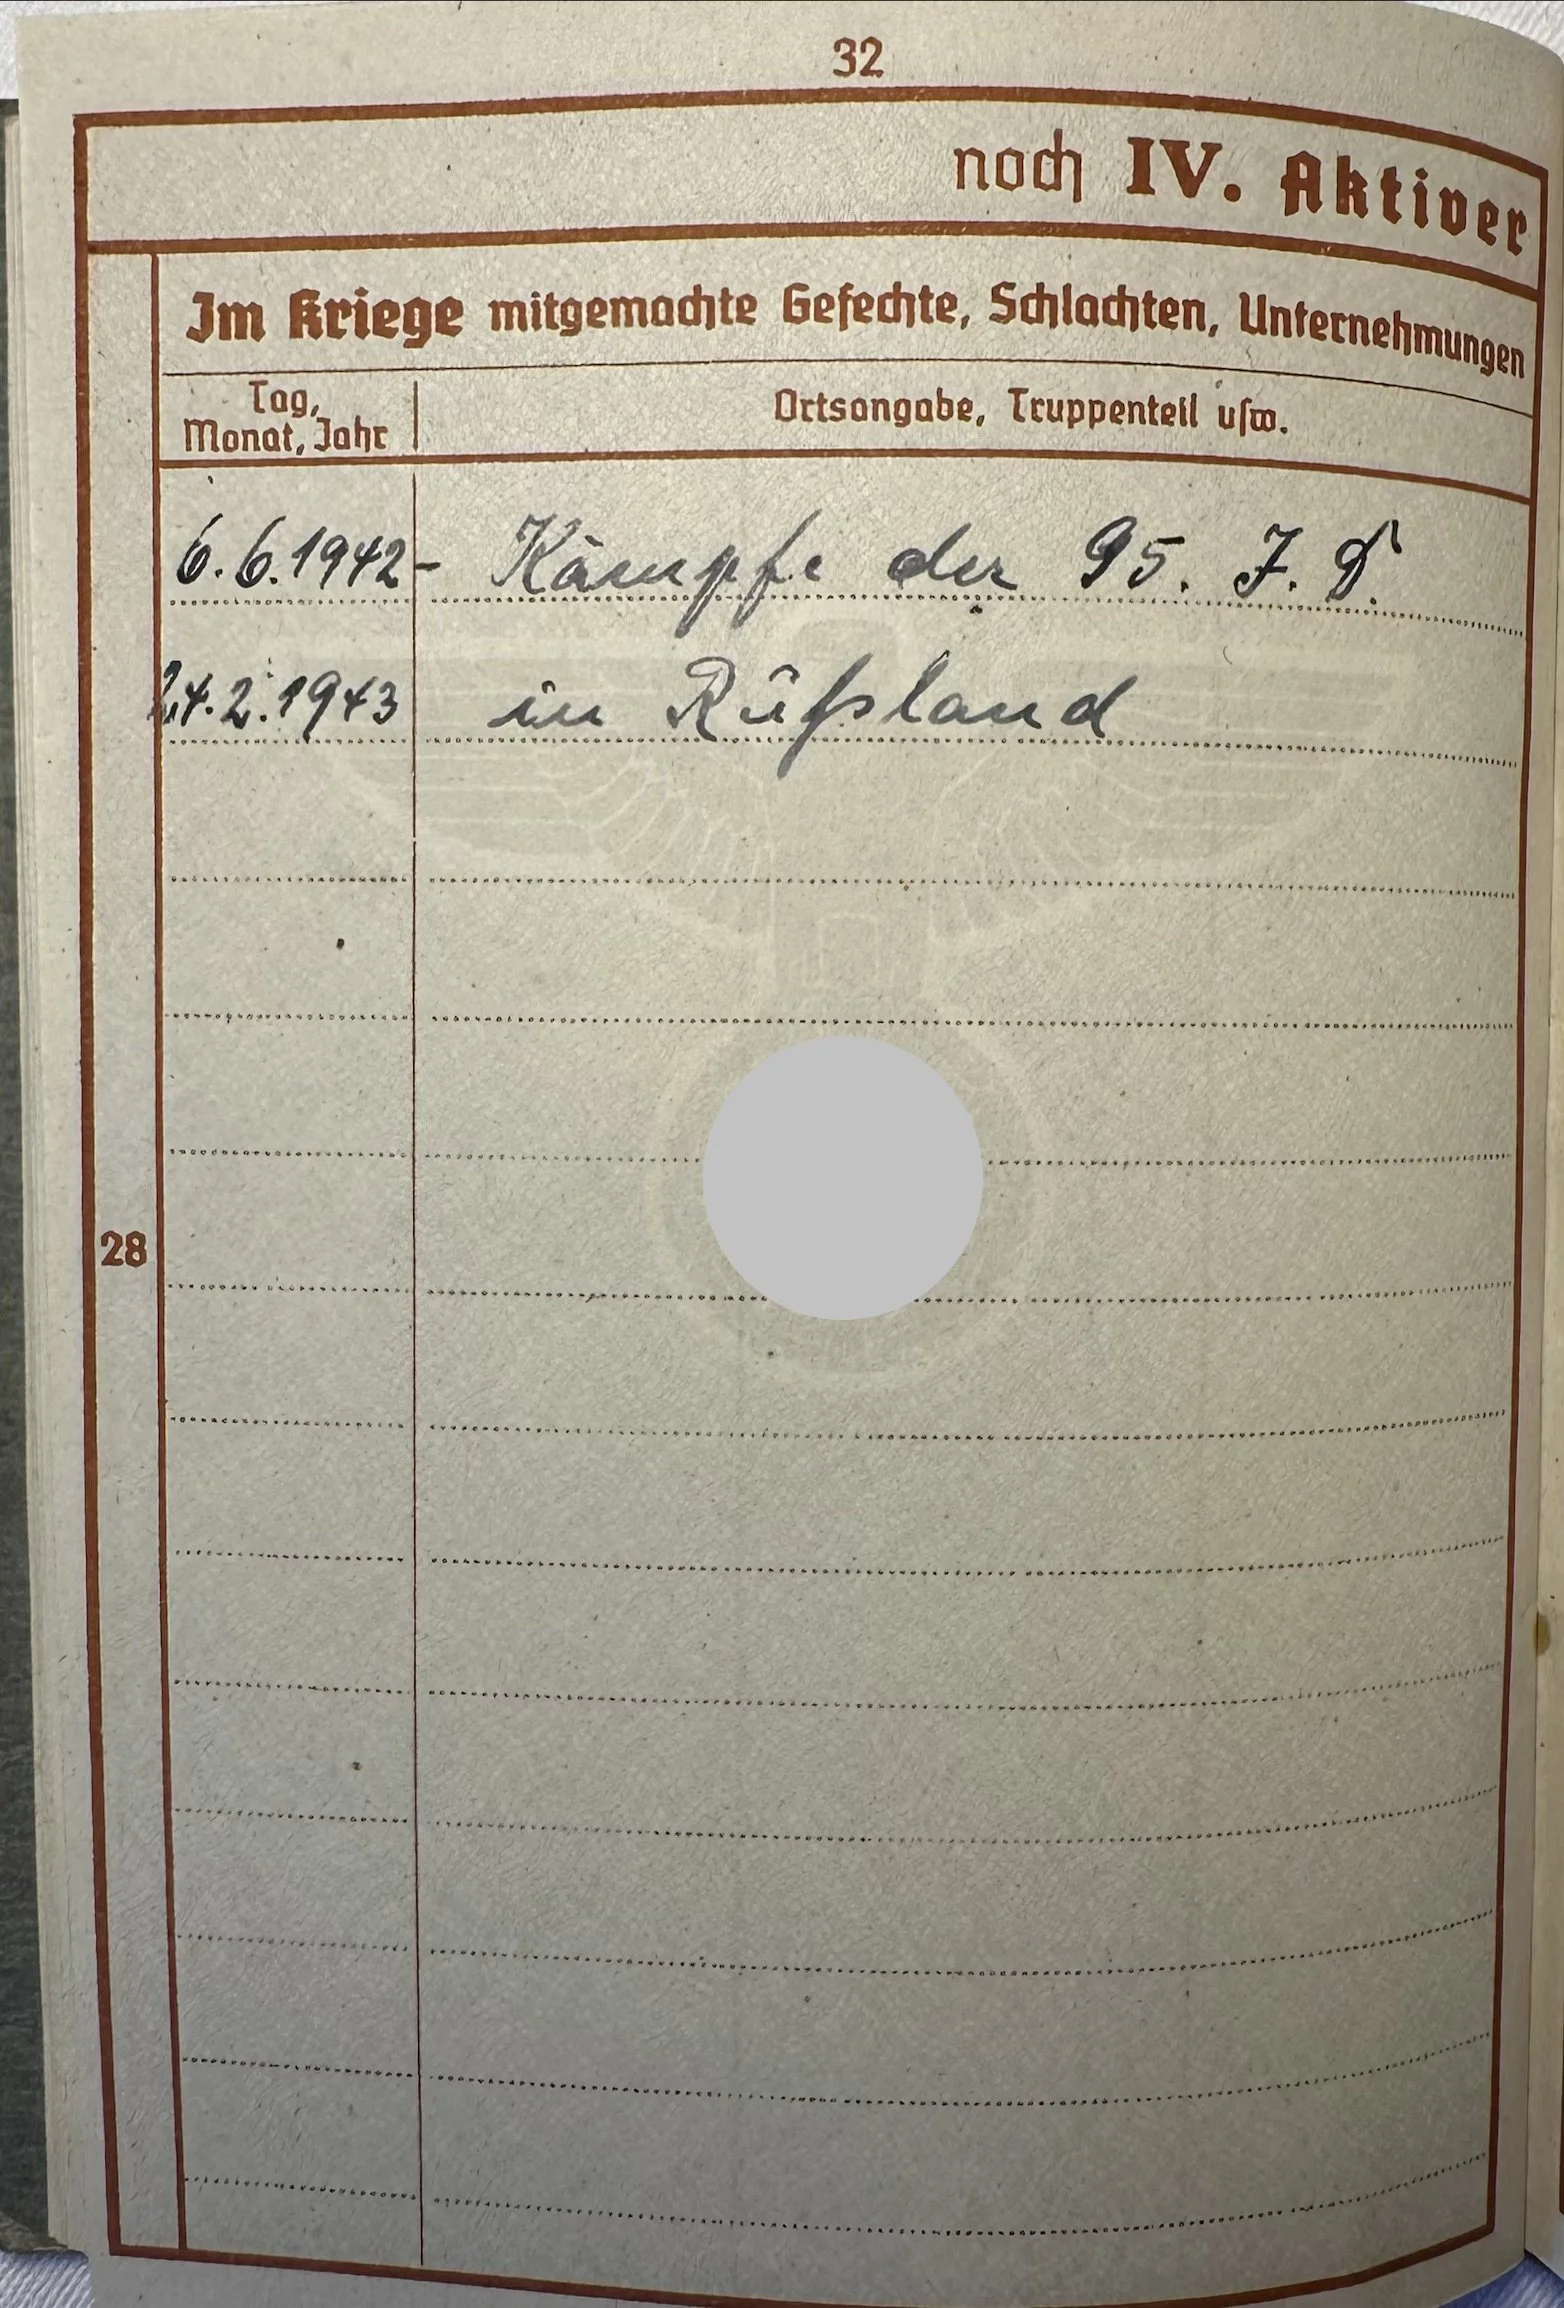 32
noch IV. Aktiver
Im Kriege mitgemachte Gefechte, Schlachten, Unternehmungen
Tag,
Monat, Jahr
Ortsangabe, Truppenteil usw.
6.6.1942- Kämpfe der 95. J. D.
24.2.1943 in Rußland
28